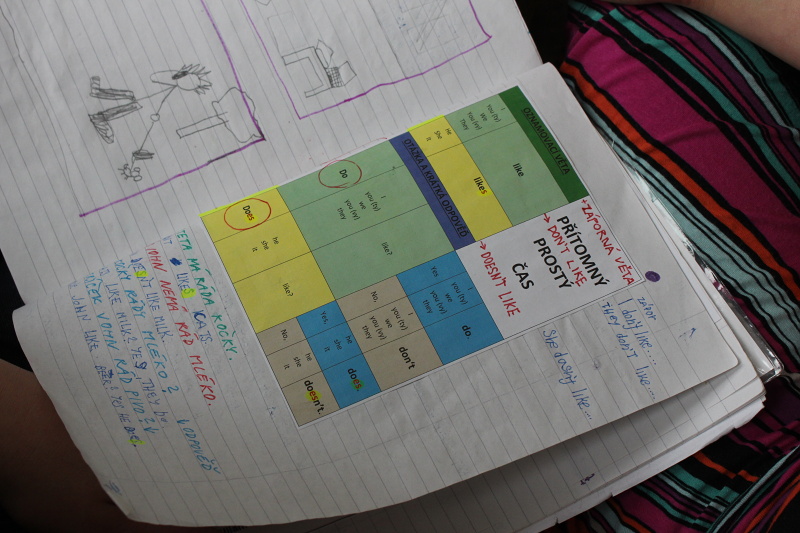 OZNAMOVACÍ VĚTA
I
you (ty)
we
you (vy)
they
like
he
she
it
likes
PŘÍTOMNÝ
PROSTÝ
ČAS
+ZÁPORNÁ VĚTA
→ DON'T LIKE
→ DOESN'T LIKE
OTÁZKA A KRÁTKÁ ODPOVĚĎ
Do
I
you (ty)
we
you (vy)
they
like?
Yes,
I
you (ty)
we
you (vy)
they
do.
No,
I
you (ty)
we
you (vy)
they
don't
Does
he
she
it
like?
Yes,
he
she
it
does.
No,
he
she
it
doesn't.
ZÁPOR
I don't like...
THEY DON'T LIKE...
She doesn't like...
TETA MÁ RÁDA KOČKY.
LIKES CATS
JOHN NEMÁ RÁD MLÉKO.
LIKE MILK.
RÁDY MLÉKO? ODPOVĚĎ
LIKE MILK? YES THEY DO
JOHN RÁD PIVO?
JOHN LIKE BEER? YES HE